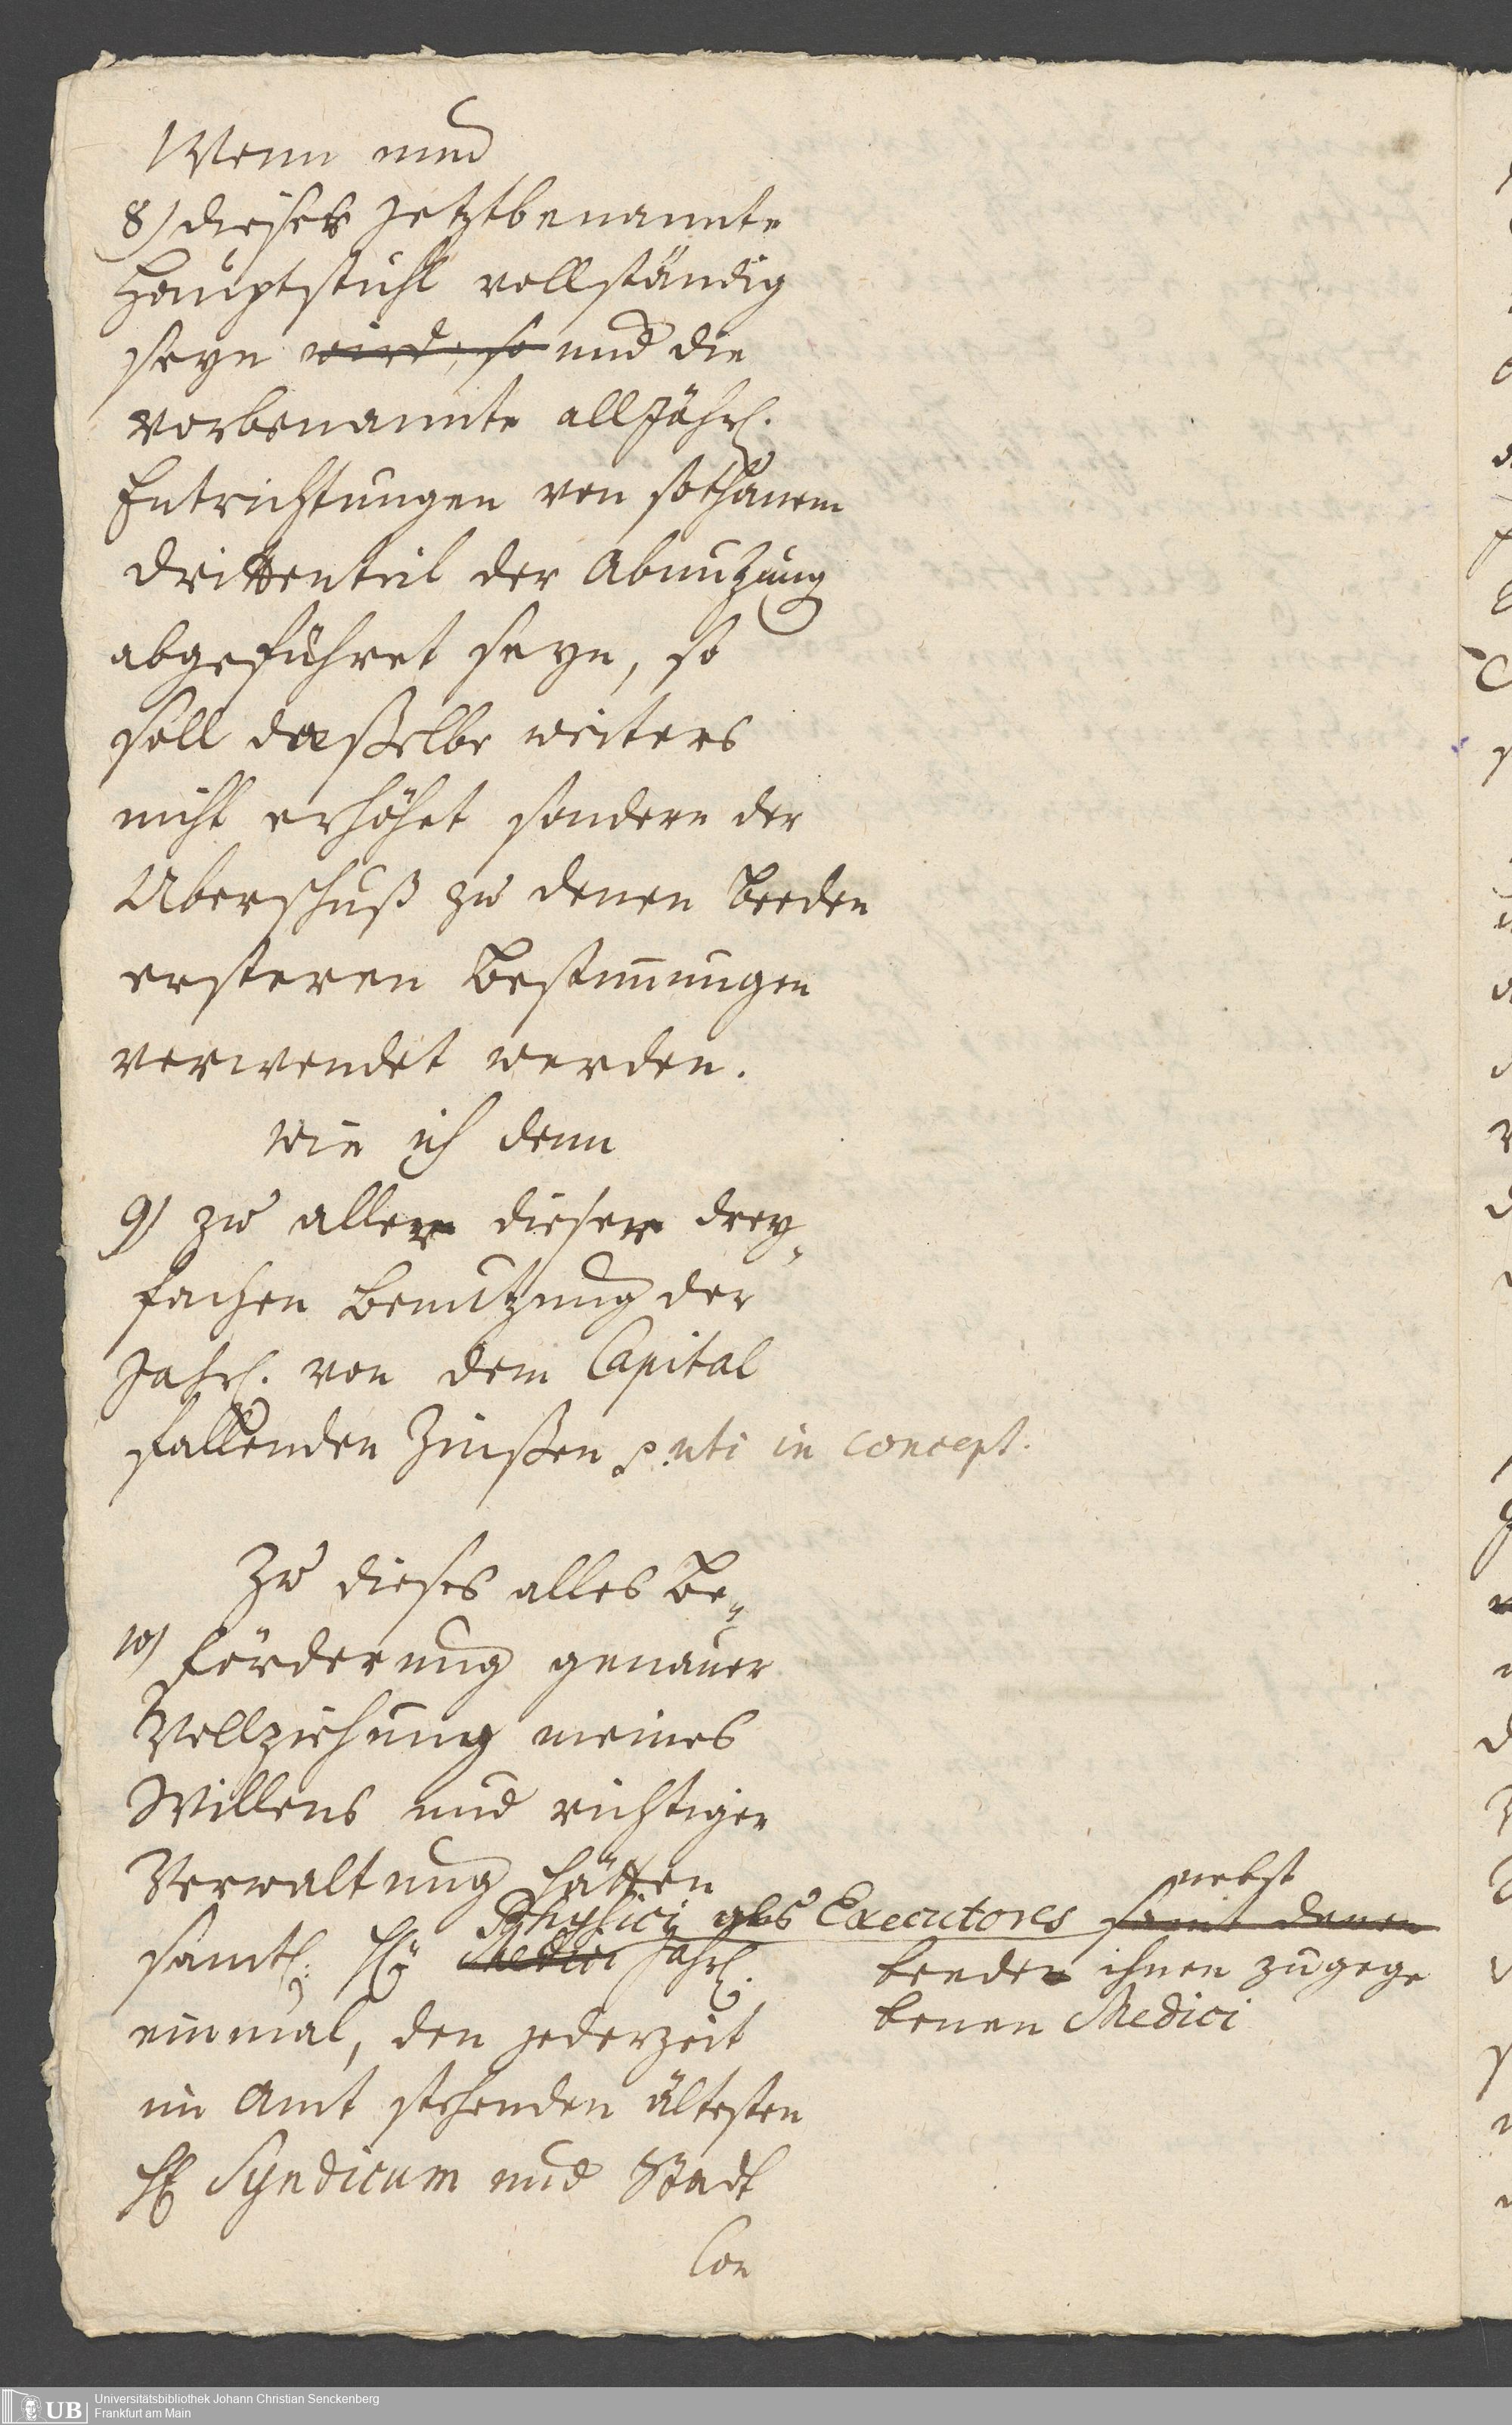 Wenn und
8) dieses jetztbenannte
Hauptstuhl vollständig
seyn wird, so und die
vorbenannte alljährl.
Entrichtungen von sothanem
Drittenteil der Abnutzung
abgeführet seyn, so
soll dasselbe weiters
nicht erhöhet sondern der
Uberschuß zu denen beeden
ersteren Bestimungen
verwendet werden.
wie ich denn
9) zu aller dieser drey
fachen Benutzung der
Jährl. von dem Capital
fallenden Zinßen p. uti in concept.
Zu dieses alles Be
10) förderung genauer
Vollziehung meines
Willens und richtiger
Verwaltung hätten
Physici als Executores samt denen nebst
sämtl. HH Medici Jährl.
beeden ihnen zugege
benen Medici
einmal, den jederzeit
im Amt stehenden ältesten
H Syndicum und Stadt
Con
UB Universitätsbibliothek Johann Christian Senckenberg
Frankfurt am Main